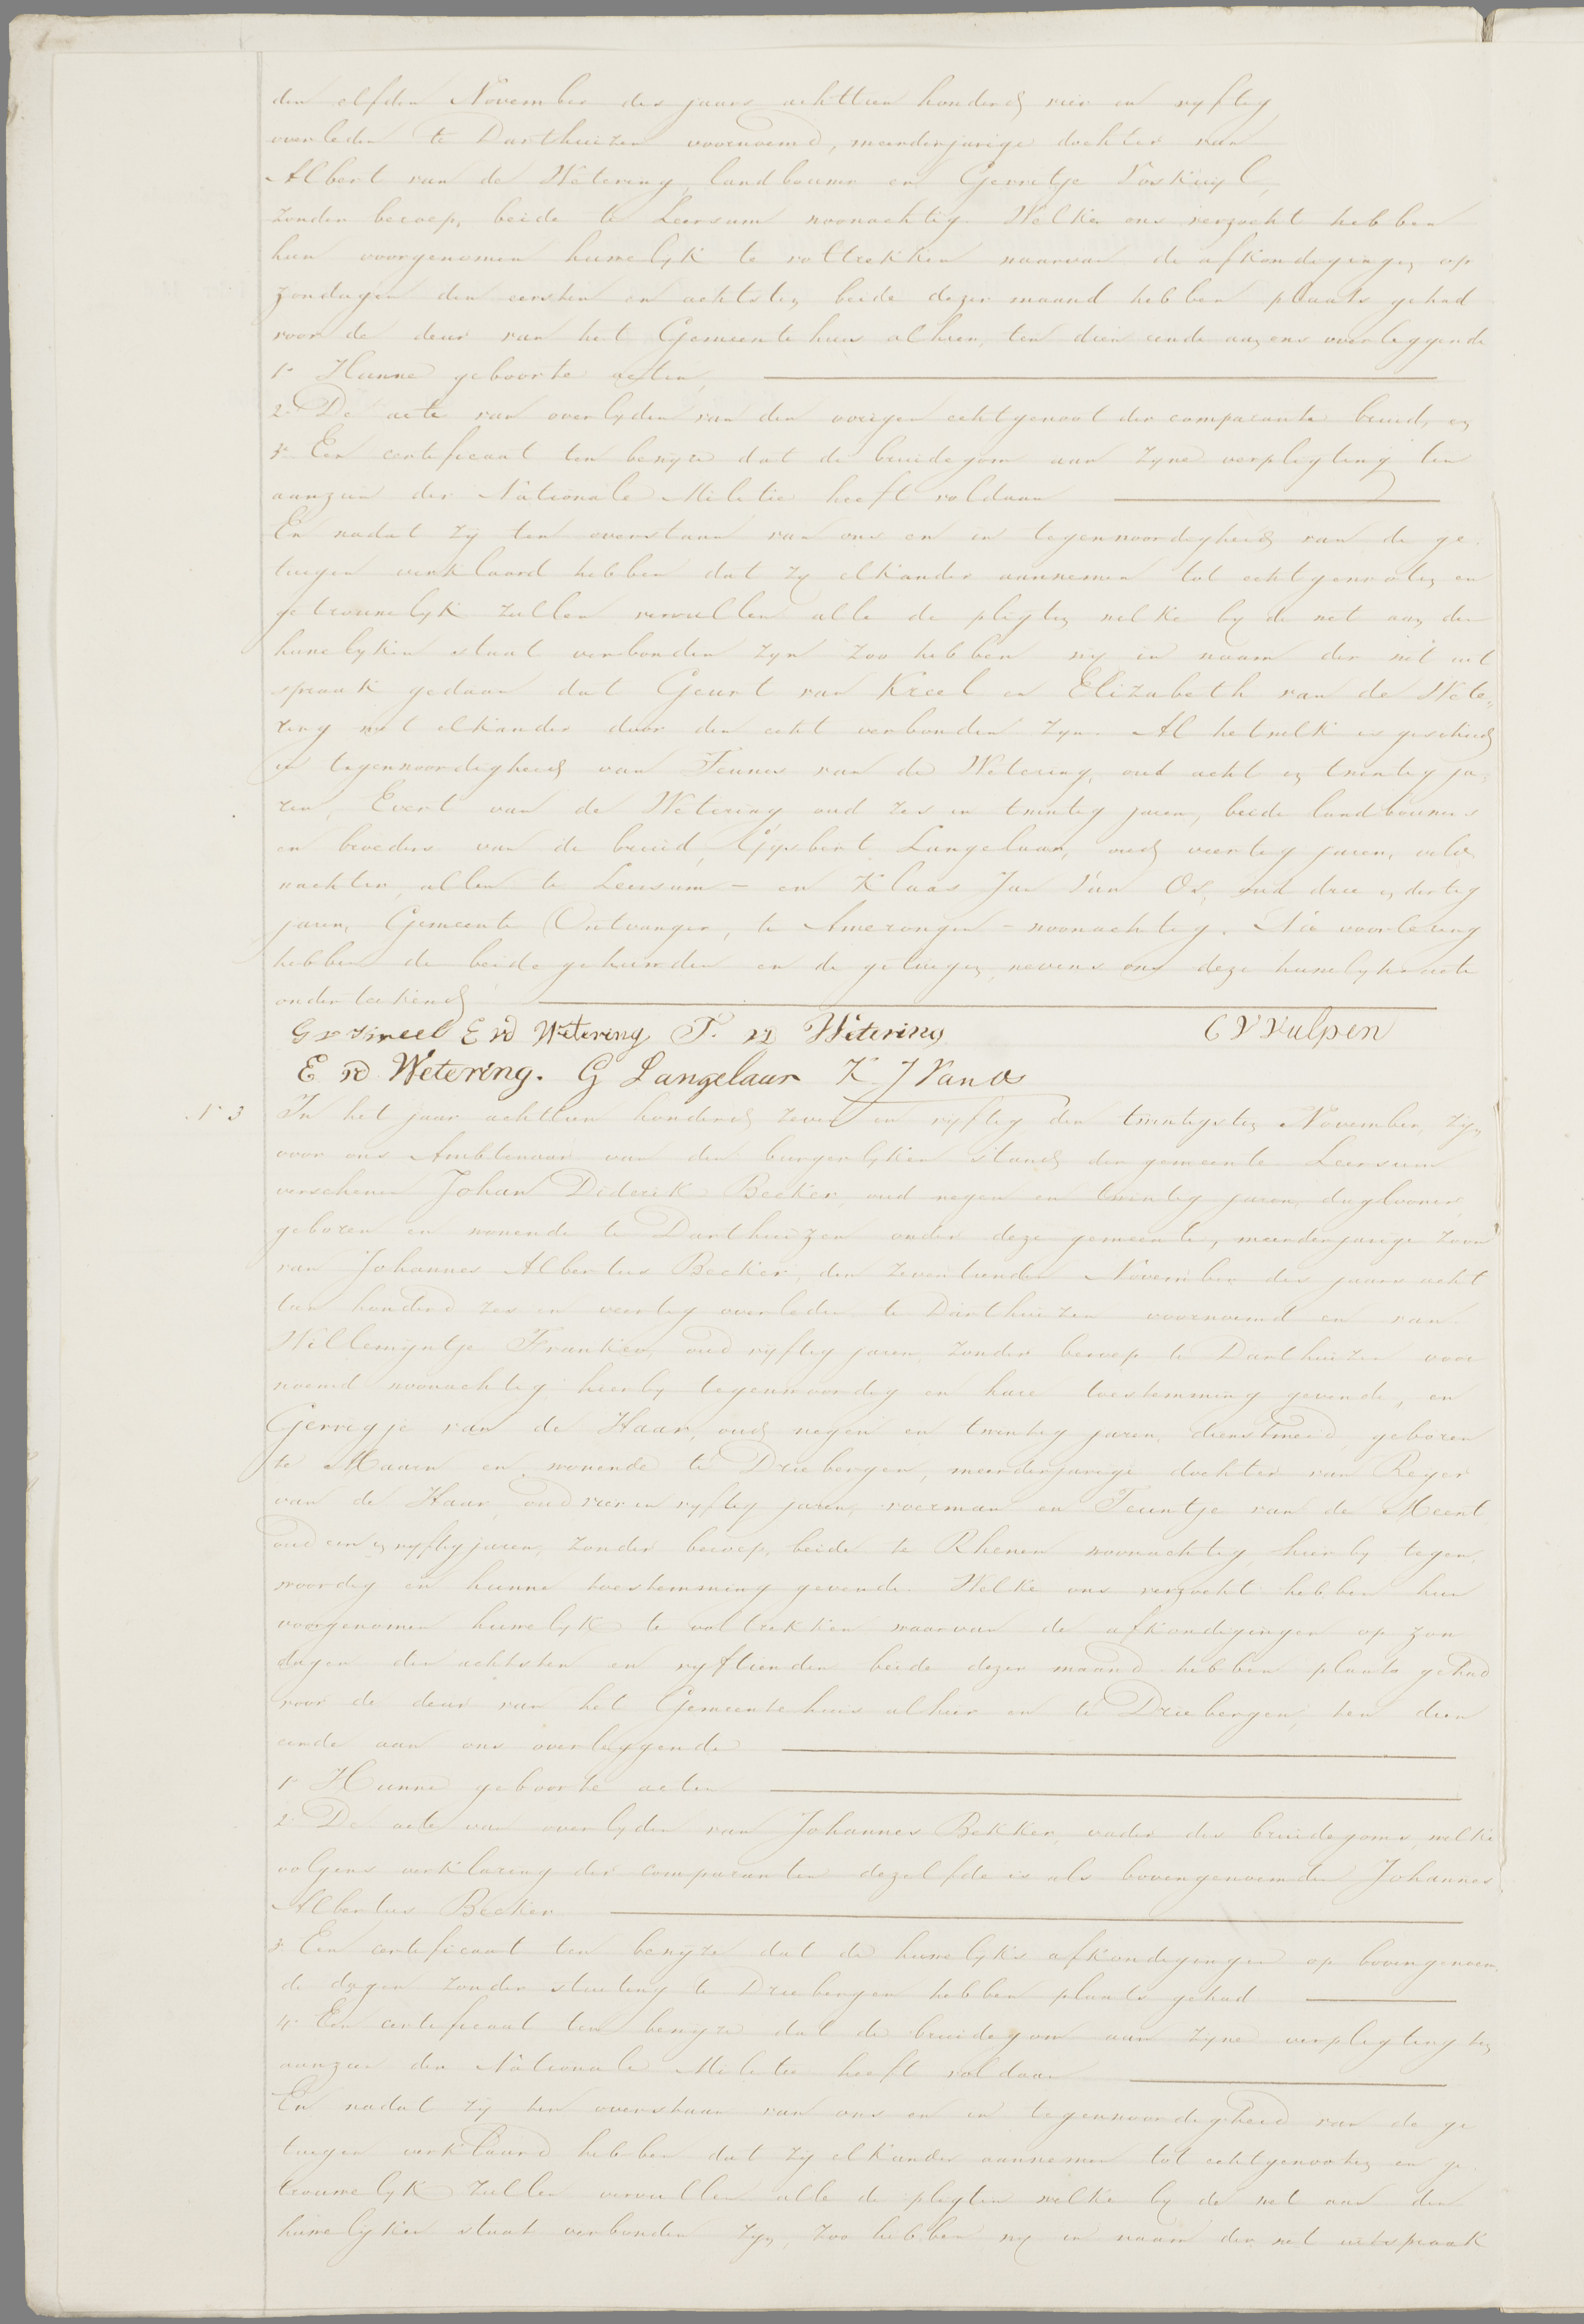 den elfden November des jaars achttien honderd vier en vyftig
overleden te Darthuizen voornoemd, meerderjarige dochter van
Albert van de Wetering, landbouwer en Gerretje Voskuyl,
zonder beroep, beide te Leersum woonachtig. Welke ons verzocht hebben
hun voorgenomen huwelyk te voltrekken waarvan de afkondigingen op
zondagen den eersten en achtsten beide dezer maand hebben plaats gehad
voor de deur van het Gemeentehuis alhier, ten dien einde aan ons overleggende
1º Hunne geboorte acten,
2º De acte van overlyden van den vorigen echtgenoot der comparante bruid, en
3º Een certificaat ten bewyze dat de bruidegom aan zyne verpligting ten
aanzien der Nationale Militie heeft voldaan
En nadat zy ten overstaan van ons en in tegenwoordigheid van de ge
tuigen verklaard hebben dat zy elkander aannemen tot echtgenooten en
getrouwelyk zullen vervullen alle de pligten welke by de wet aan den
huwelyken staat verbonden zyn zoo hebben wy in naam der wet uit
spraak gedaan dat Geurt van Kreel en Elizabeth van de Wete-
ring met elkander door den echt verbonden zyn. Al hetwelk is geschied
in tegenwoordigheid van Teunis van de Wetering, oud acht en twintig ja-
ren, Evert van de Wetering oud zes en twintig jaren, beide landbouwers
en broeders van de bruid, Gysbert Langelaar, oud veertig jaren, veld
wachter, allen te Leersum - en Klaas Jan Van Os, oud drie en dertig
jaren, Gemeente Ontvanger, te Amerongen - woonachtig. Na voorlezing
hebben de beide gehuwden en de getuigen nevens ons deze huwelyksacte
onderteekend
G v Kreel E vd Wetering T. vd Wetering C V Vulpen
E vd Wetering. G Langelaar K. J Van Os
Nº 3 In het jaar achttien honderd zeven en vyftig den twintigsten November, zyn
voor ons Ambtenaar van den burgerlyken stand der gemeente Leersum
verschenen Johan Diderik Becker, oud negen en twintig jaren, daglooner,
geboren en wonende te Darthuizen onder deze gemeente, meerderjarige zoon
van Johannes Albertus Becker, den zeventienden November des jaars acht
tien honderd zes en veertig overleden te Darthuizen voornoemd en van
Willemyntje Franken, oud vyftig jaren, zonder beroep te Darthuizen voor
noemd woonachtig hierby tegenwoordig en hare toestemming gevende, en
Gerregje van de Haar, oud negen en twintig jaren, dienstmeid, geboren
te Maarn en wonende te Driebergen, meerderjarige dochter van Reyer
van de Haar, oud vier en vyftig jaren, voerman en Teuntje van de Meent
oud een en vyftig jaren, zonder beroep, beide te Rhenen woonachtig hierby tegen
woordig en hunne toestemming gevende. Welke ons verzocht hebben hun
voorgenomen huwelyk te voltrekken waarvan de afkondigingen op zon
dagen den achtsten en vyftienden beide dezer maand hebben plaats gehad
voor de deur van het Gemeentehuis alhier en te Driebergen, ten dien
einde aan ons overleggende
1º Hunne geboorte acten
2º De acte van overlyden van Johannes Bekker, vader des bruidegoms, welke
volgens verklaring der comparanten dezelfde is als bovengenoemde Johannes
Albertus Becker
3º Een certificaat ten bewyze dat de huwelyks afkondigingen op bovengenoem
de dagen zonder stuiting te Driebergen hebben plaats gehad
4º Een certificaat ten bewyze dat de bruidegom aan zyne verpligting ten
aanzien der Nationale Militie heeft voldaan
En nadat zy ten overstaan van ons en in tegenwoordigheid van de ge
tuigen verklaard hebben dat zy elkander aannemen tot echtgenooten en ge
trouwelyk zullen vervullen alle de pligten welke by de wet aan den
huwelyken staat verbonden zyn, zoo hebben wy in naam der wet uitspraak